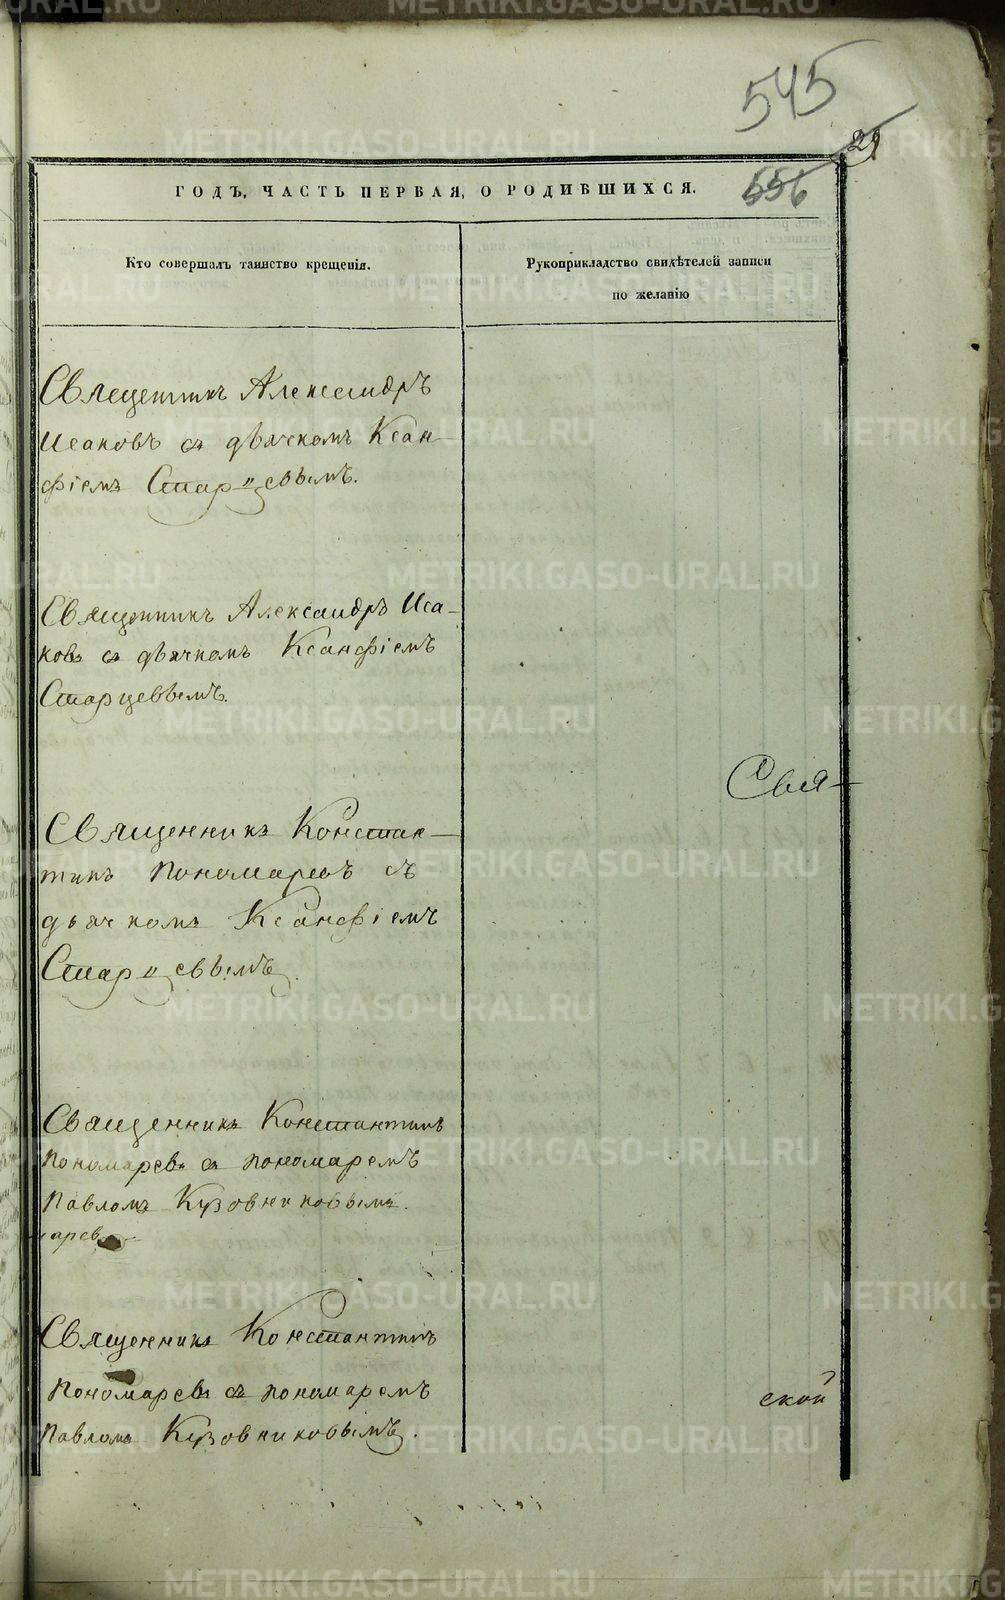 545
29
556
ГОДЪ, ЧАСТЬ ПЕРВАЯ, О РОДИВШИХСЯ.
Кто совершалъ таинство крещенія.
Рукоприкладство свидѣтелей записи
по желанію
Священникъ Александръ
Исаковъ съ дьячкомъ Ксан-
фіемъ Старцевымъ.
Священникъ Александръ Иса-
ковъ съ дьячкомъ Ксанфіемъ
Старцевымъ.
Свя-
Священникъ Констан-
тинъ Пономаревъ съ
дьячкомъ Ксанфіемъ
Старцевымъ.
Священникъ Константинъ
Пономаревъ съ пономаремъ
Павломъ Кузовниковымъ.
Священникъ Константинъ
Пономаревъ съ пономаремъ
ской
Павломъ Кузовниковымъ.
METRIKI.GASO-URAL.RU